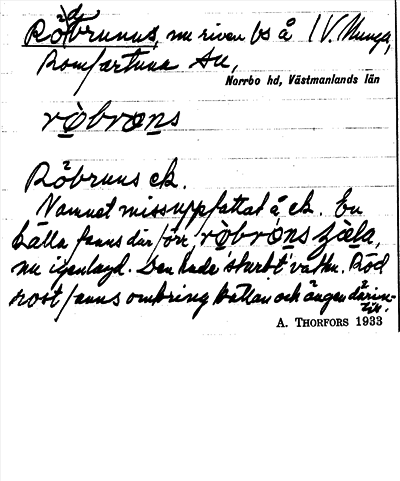 Rödbrunns, nu riven bs å 1 V. Munga,
Romfartuna sn,
Norrbo hd, Västmanlands län
röbrons
Röbruns ek.
Namnet missuppfattat å ek. En
källa fanns där förr, röbrons
nu igenlagd. Den hade 'starkt' vatten. Röd
rost fanns omkring källan och ängen därin-
till.
A. THORFORS 1933